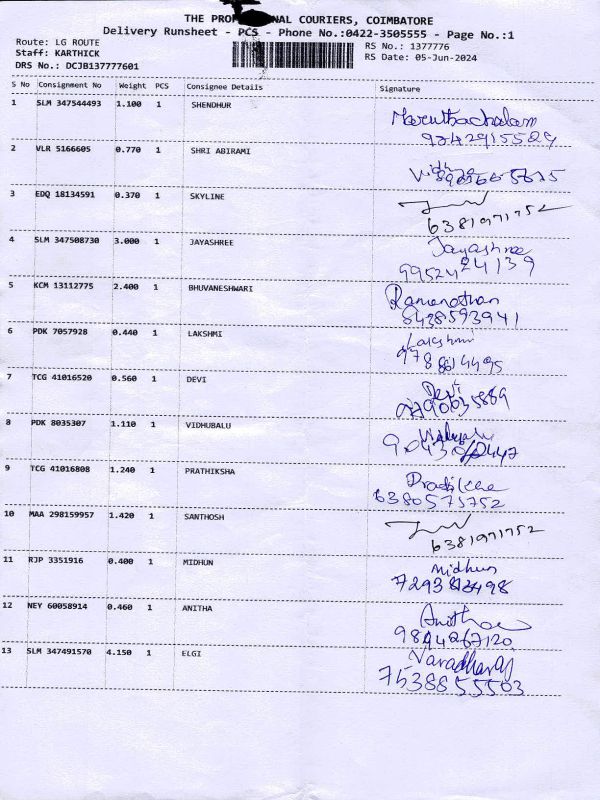 THE PROFESSIONAL COURIERS, COIMBATORE
Delivery Runsheet - PCS - Phone No.:0422-3505555 - Page No.:1
Route: LG ROUTE
RS No.: 1377776
Staff: KARTHICK
RS Date: 05-Jun-2024
DRS No.: DCJB137777601
S No Consignment No Weight PCS Consignee Details Signature
1 SLM 347544493 1.100 1 SHENDHUR Maruthachalam
9842915529
2 VLR 5166605 0.770 1 SHRI ABIRAMI
3 EDQ 18134591 0.370 1 SKYLINE
6381971752
4 SLM 347508730 3.000 1 JAYASHREE Jayashree
9952424139
5 KCM 13112775 2.400 1 BHUVANESHWARI Ramanathan
8438593941
6 PDK 7057928 0.440 1 LAKSHMI Lakshmi
7 TCG 41016520 0.560 1 DEVI Devi
8 PDK 8035307 1.110 1 VIDHUBALU
9 TCG 41016808 1.240 1 PRATHIKSHA
6380575752
10 MAA 298159957 1.420 1 SANTHOSH
6381971752
11 RJP 3351916 0.400 1 MIDHUN Midhun
12 NEY 60058914 0.460 1 ANITHA Anitha
9894267120
13 SLM 347491570 4.150 1 ELGI Varadharaj
7538855503